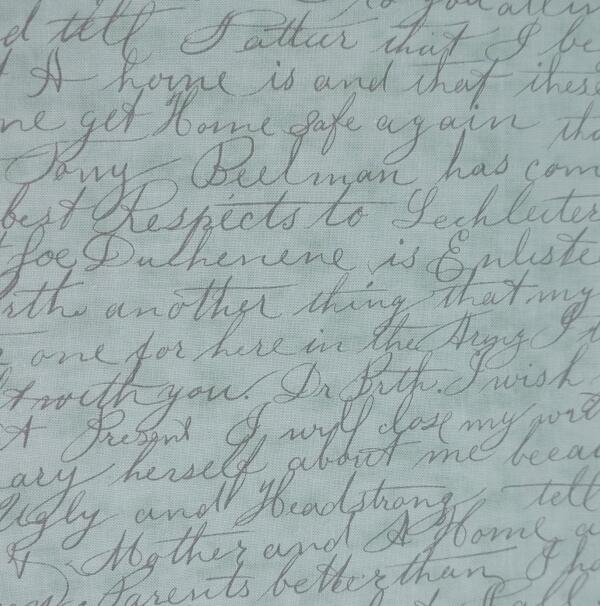 to you all in
d tell Father that I be
A home is and that these
me get Home safe again tha
Tony Beelman has com
best Respects to Lechleiter
Joe Duchenene is Enliste
Brth another thing that my
one for here in the Army I
with you. Dr Brth. I wish
A Present I will close my writ
ary herself about me becau
Ugly and Headstrong, tell
& Mother and A Home a
Parents better than I ha